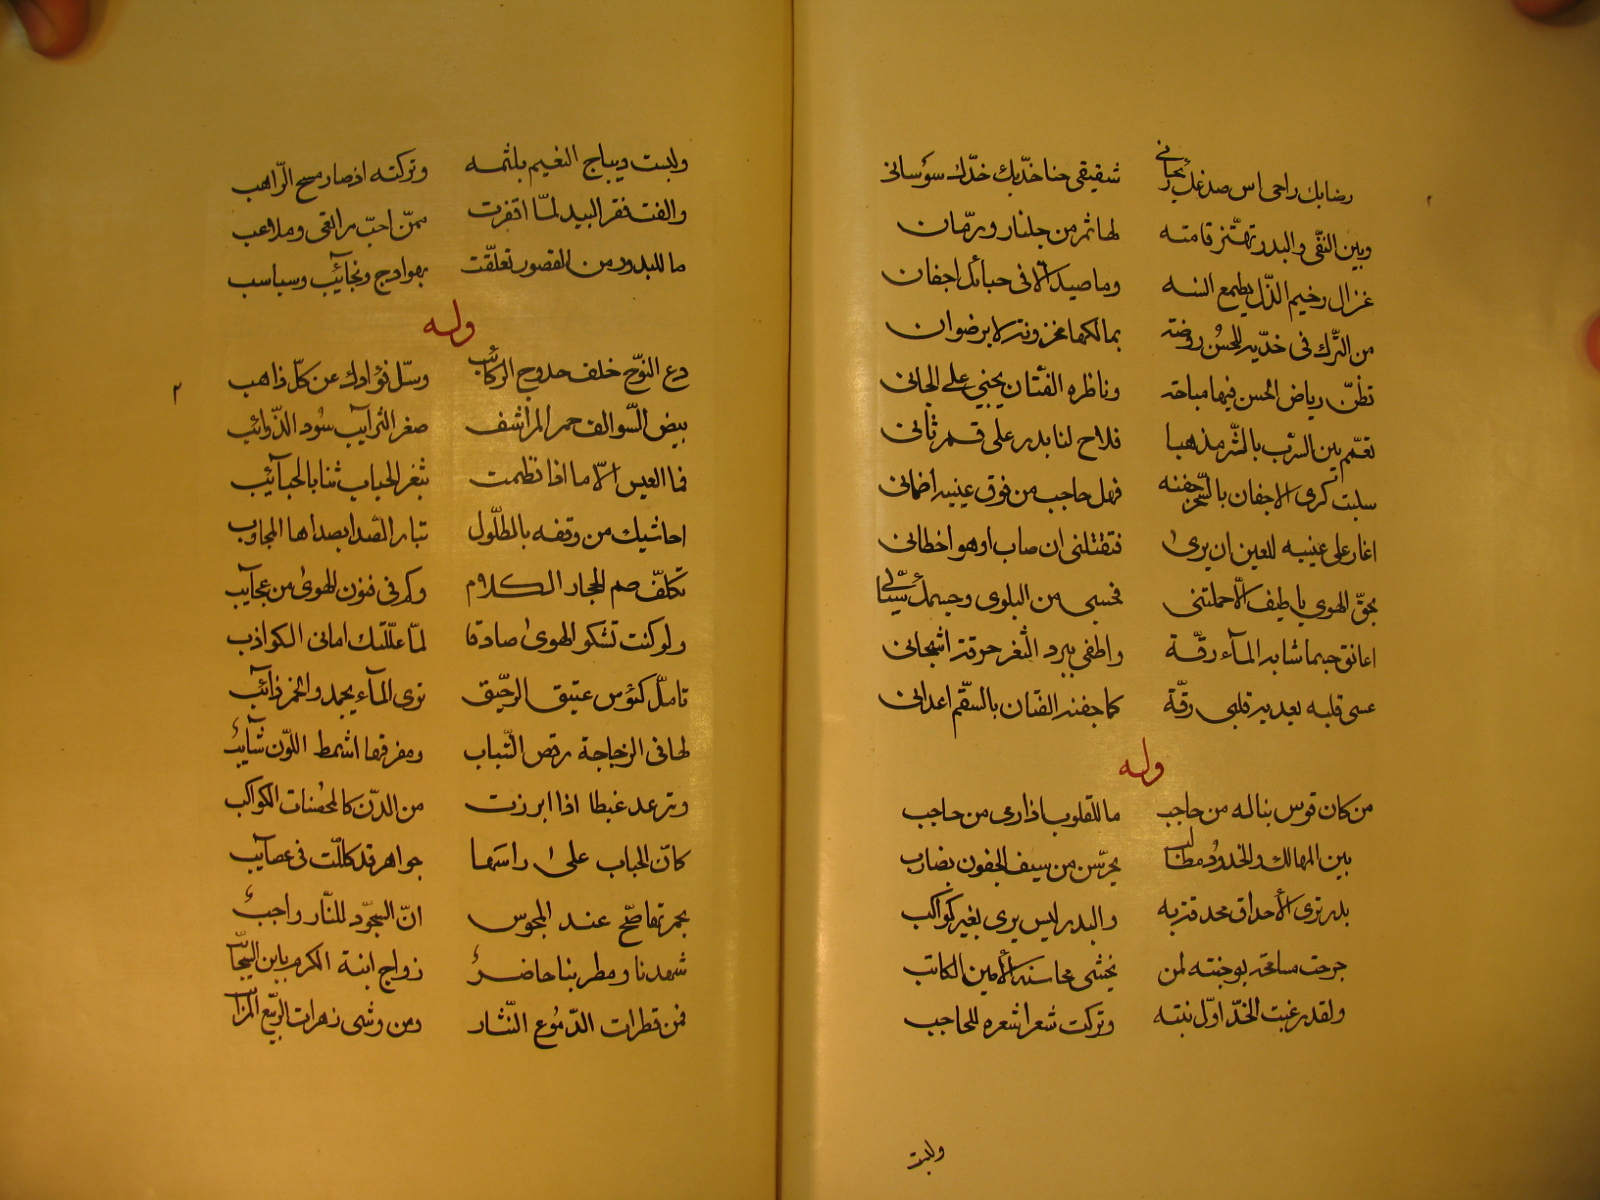 رضابك راحى اس صدغك ريحانى شقيقى جنا خديك خدك سوسانى
وبين النقى والبدر تهتز قامته لها ثمر من جلنار ورمان
غزال رخيم الدل يطمع انسه وما صيد الا فى حبائل اجفان
من الترك فى خديه للحسن روضة بمالكها مخزونة لا برضوان
تظن رياض الحسن فيها مباحة وناظره الفتان يجنى على الجانى
تعمم بين السرب بالشر مذهبا فلاح لنا بدر على قمر ثانى
سلبت كرى الاجفان بالسحر جفنه فهل حاجب من فوق عينيه اضمانى
اغار على عينيه للعين ان يرى فتقتلنى ان صاب او هو اخطانى
بحق الهوى يا طيف الا حملتنى فحسبى من البلوى وجسمك سيان
اعانق جسما شابه المآء رقة واطفى ببرد الثغر حرقة اشجانى
عسى قلبه يعديه قلبى رقة كما جفنه الفتان بالسقم اعدانى
وله
من كان قوس بناله من حاجب ما للقلوب اذا رمى من حاجب
بين المهالك والخدود مطالب يحرسن من سيف الجفون بضارب
بدر ترى الأحداق محدقة به والبدر ليس يرى بغير كواكب
جرحت مسامحة بوجنته لمن يخشى محاسنه الأمين الكاتب
ولقد رغبت الخد اول نبته وتركت شعرا شعره للحاجب
ولبست
ولبست ديباج النعيم بلثمه وتركته اذ صار مسح الراهب
والفت فقر البيد لما اقفرت ممن احب مرافقى وملاعب
ما للبدور من القصور تعلقت بهوادج ونجائيب وسباسب
وله
دع النوح خلف حدوج الركائب وسل فؤادك عن كل ذاهب
ببيض السوالف حمر المراشف صفر الترآيب سود الذوائب
فما العيس الا ما اذا نظمت بثغر الحباب ثنايا الحبآئب
احاشيك من وقفه بالطلول تبار الصدا بصداها المجاوب
تكلف صم الحجار الكلام وكم فى فنون الهوى من عجآيب
ولو كنت تشكو الهوى صادقا لما عللتك امانى الكواذب
تامل كئوس عتيق الرحيق ترى المآء يجمد والخمر ذآئب
لها فى الزجاجة رقص الشباب ومفرقها اشمط اللون شآئب
وترعد غيظا اذا ابرزت من الدن كالمحصنات الكواكب
كان الحباب على راسها جواهر قد كللت فى عصآيب
بحمرتها صح عند المجوس ان السجود للنار واجب
شهدنا ومطربنا حاضر زواج ابنة الكرم بابن السحاب
فمن قطرات الدموع النثار ومن وشى زهرات الربيع